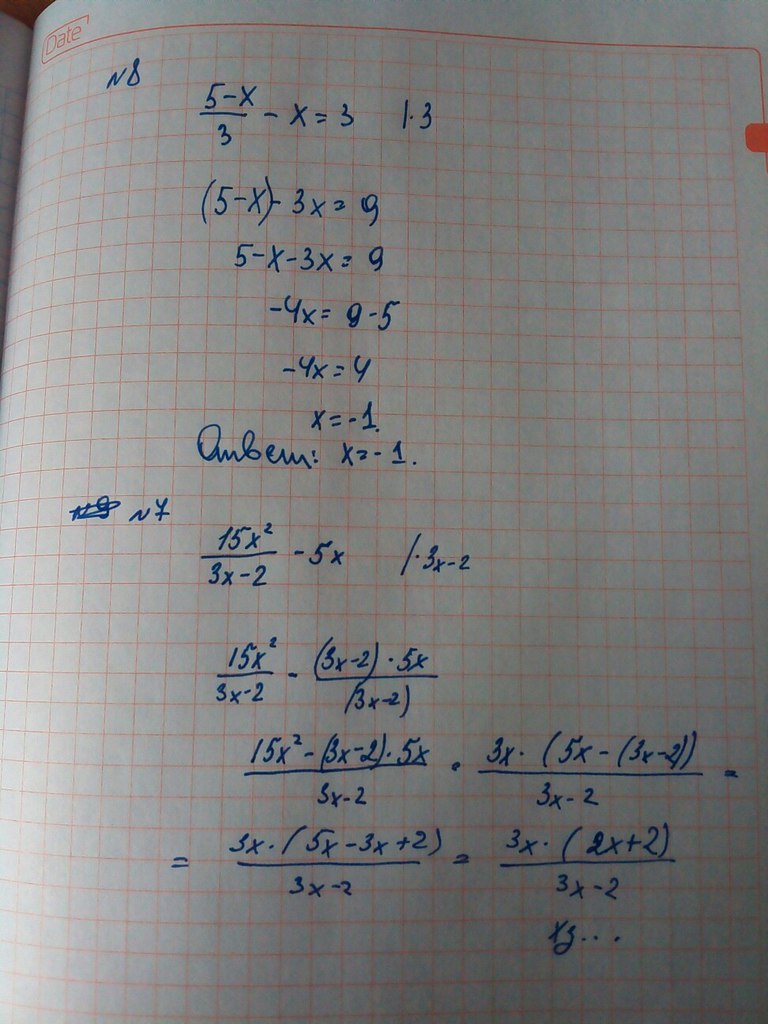 Date
№8
(5-x)/3 - x = 3 |·3
(5-x) - 3x = 9
5-x-3x = 9
-4x = 9-5
-4x = 4
x = -1.
Ответ: x = -1.
№7
15x²/(3x-2) - 5x /·3x-2
15x²/(3x-2) - ((3x-2)·5x)/(3x-2)
(15x²-(3x-2)·5x)/(3x-2) = (3x·(5x-(3x-2)))/(3x-2) =
= (3x·(5x-3x+2))/(3x-2) = (3x·(2x+2))/(3x-2)
хз...